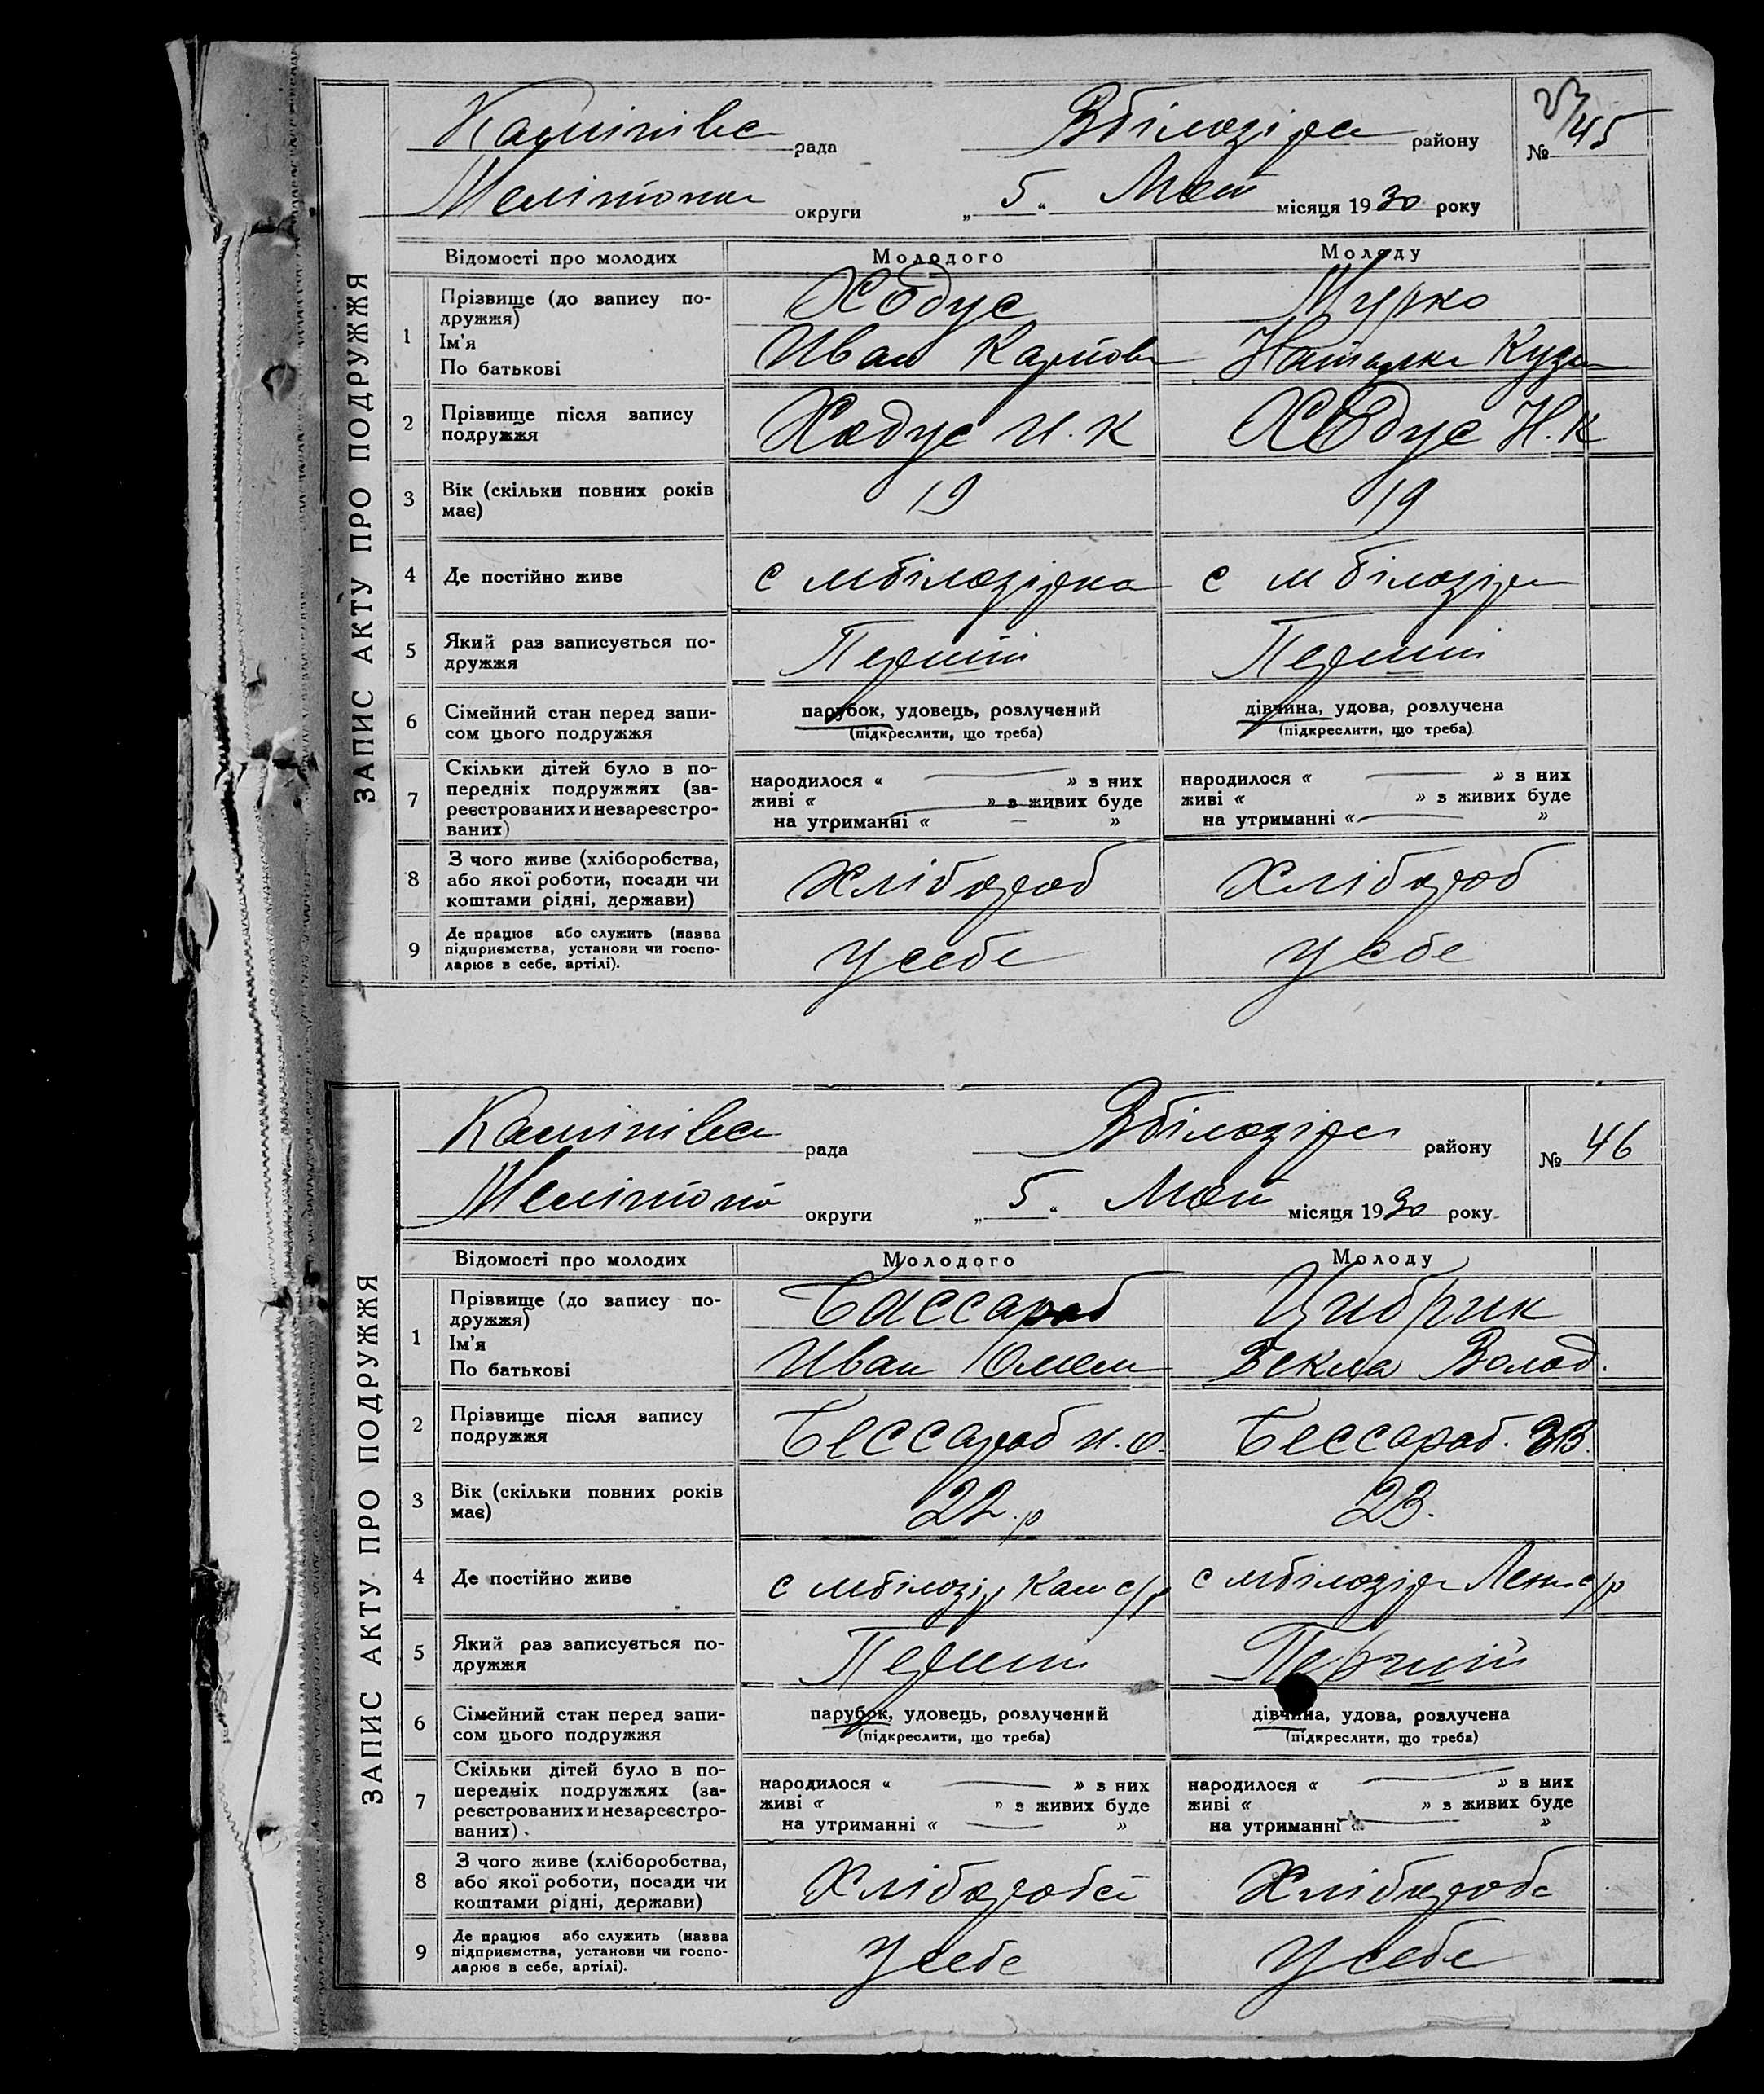 ЗАПИС АКТУ ПРО ПОДРУЖЖЯ
рада Вбілозірс району № 45
округи „ 5 “ Май місяця 1930 року
Відомості про молодих Молодого Молоду
1 Прізвище (до запису по-
дружжя)
Ім'я
По батькові
Ходус Мурко
Иван Карпов Наталка Кузм
2 Прізвище після запису
подружжя
Ходус И. К Ходус Н. К
3 Вік (скільки повних років
має)
19 19
4 Де постійно живе с мбілозірка с м білозір
5 Який раз записується по-
дружжя
Перший Перший
6 Сімейний стан перед запи-
сом цього подружжя
парубок, удовець, розлучений дівчина, удова, розлучена
(підкреслити, що треба) (підкреслити, що треба)
7 Скільки дітей було в по-
передніх подружжях (за-
реєстрованих и незареєстро-
ваних)
народилося « » з них народилося « » з них
живі « » з живих буде живі « » з живих буде
на утриманні « » на утриманні « »
8 З чого живе (хліборобства,
або якої роботи, посади чи
коштами рідні, держави)
Хлібороб Хлібороб
9 Де працює або служить (назва
підприємства, установи чи госпо-
дарює в себе, артілі).
у себе у себе
ЗАПИС АКТУ ПРО ПОДРУЖЖЯ
рада Вбілозірс району № 46
Мелітоп округи „ 5 “ Май місяця 1930 року
Відомості про молодих Молодого Молоду
1 Прізвище (до запису по-
дружжя)
Ім'я
По батькові
Бассараб Цибрик
Иван Омел Векла Волод.
2 Прізвище після запису
подружжя
Бессараб И. О. Бессараб. ВВ.
3 Вік (скільки повних років
має)
22. р 23.
4 Де постійно живе с мбілозір Кам с/р с мбілозір Лен с/р
5 Який раз записується по-
дружжя
Перший Перший
6 Сімейний стан перед запи-
сом цього подружжя
парубок, удовець, розлучений дівчина, удова, розлучена
(підкреслити, що треба) (підкреслити, що треба)
7 Скільки дітей було в по-
передніх подружжях (за-
реєстрованих и незареєстро-
ваних).
народилося « » з них народилося « » з них
живі « » з живих буде живі « » з живих буде
на утриманні « » на утриманні « »
8 З чого живе (хліборобства,
або якої роботи, посади чи
коштами рідні, держави)
Хліборобс Хліборобс
9 Де працює або служить (назва
підприємства, установи чи госпо-
дарює в себе, артілі).
у себе у себе